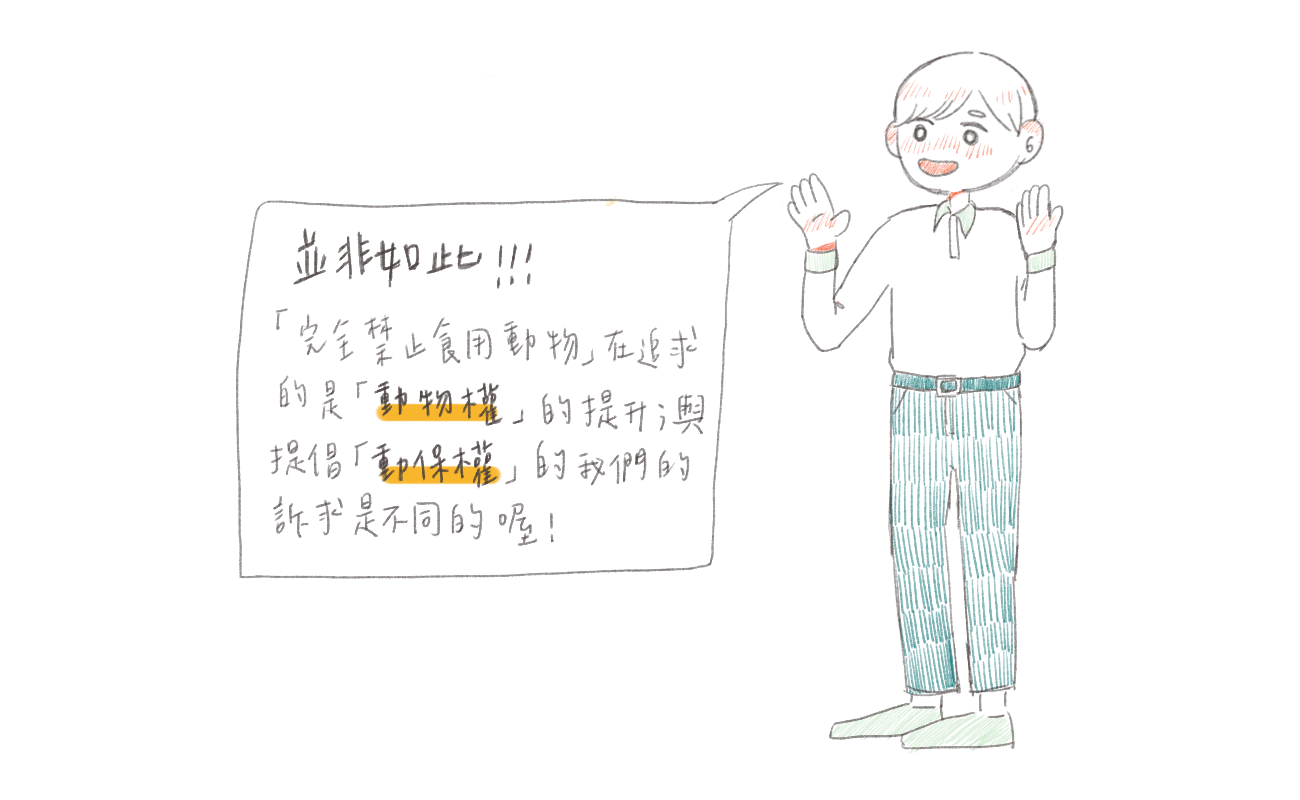 並非如此!!!
「完全禁止食用動物」在追求
的是「動物權」的提升;與
提倡「動保權」的我們的
訴求是不同的喔!